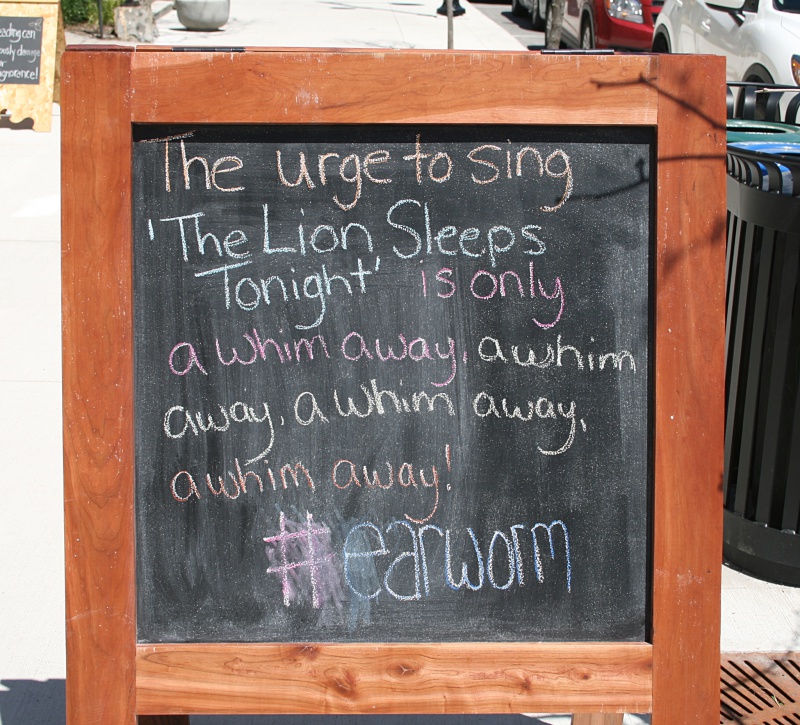 eading can
ously damage
ignorance!
The urge to sing
'The Lion Sleeps
Tonight' is only
a whim away, a whim
away, a whim away,
a whim away!
#earworm